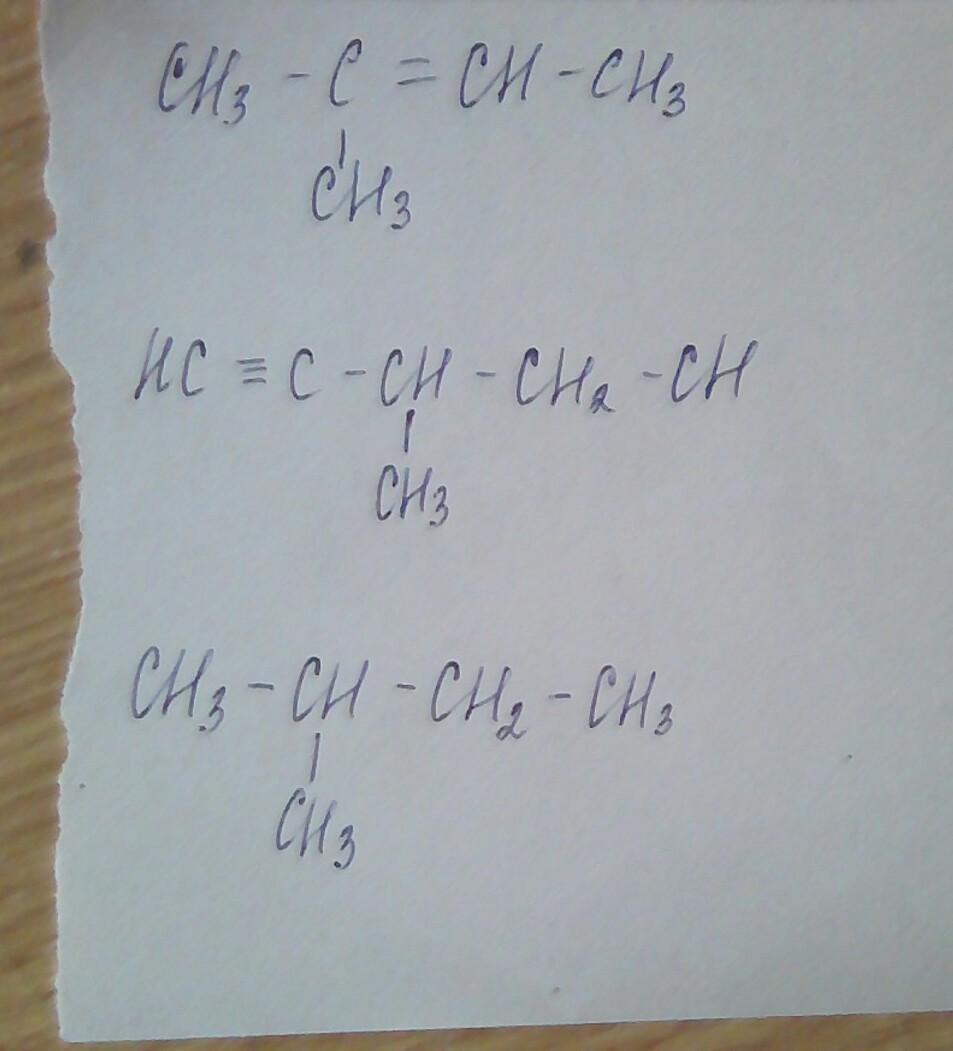 CH3 - C = CH - CH3
|
CH3
HC ≡ C - CH - CH2 - CH
|
CH3
CH3 - CH - CH2 - CH3
|
CH3